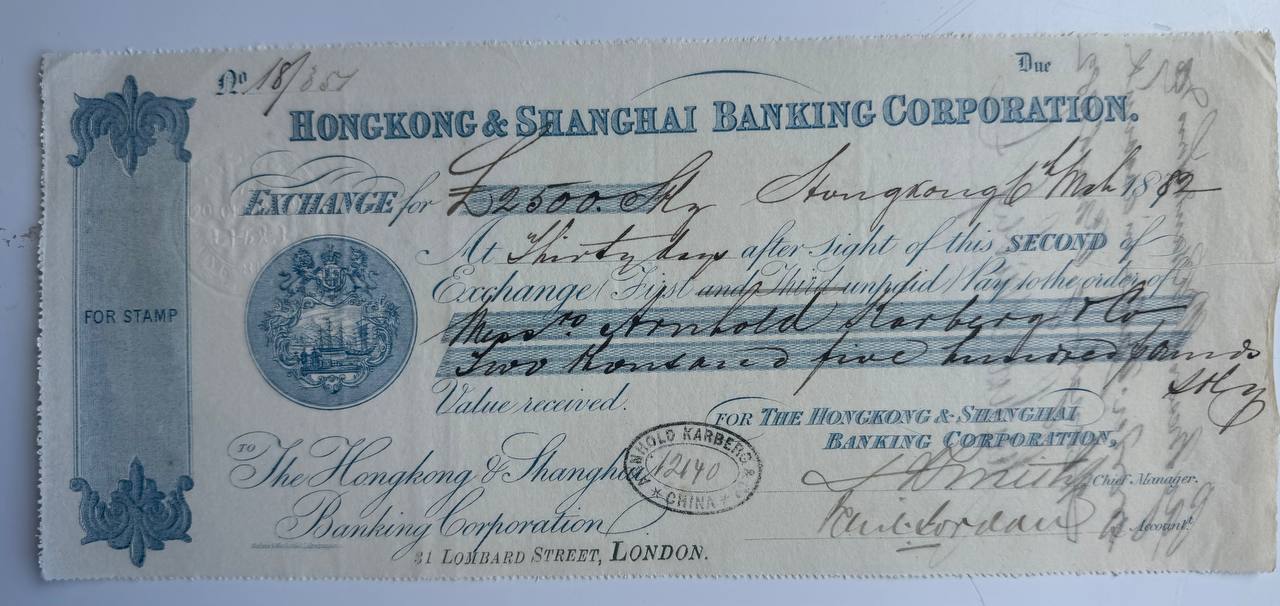 No. 18/351
Due
HONGKONG & SHANGHAI BANKING CORPORATION.
EXCHANGE for £2500. Stg Hongkong 6th Mch 1882
At Thirty days after sight of this SECOND of
Exchange (First and Third unpaid) Pay to the order of
Messrs Arnhold Karberg & Co
Two thousand five hundred pounds
Stlg
Value received.
FOR STAMP
FOR THE HONGKONG & SHANGHAI
BANKING CORPORATION,
TO The Hongkong & Shanghai
Banking Corporation
ARNHOLD KARBERG & Co
12140
CHINA
Smith Chief Manager.
Jordan Account.
31 LOMBARD STREET, LONDON.